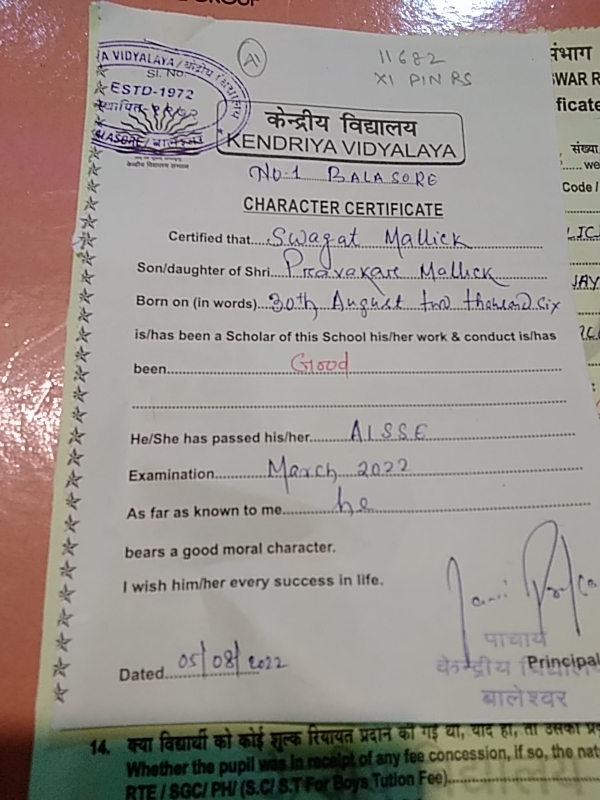 GROUP
A VIDYALAYA / केंद्रीय विद्यालय
Sl. No.
ESTD-1972
BALASORE / बालेश्वर
A1
11682
XI PIN RS
केन्द्रीय विद्यालय
KENDRIYA VIDYALAYA
केन्द्रीय विद्यालय संगठन
NO-1 BALASORE
CHARACTER CERTIFICATE
Certified that....Swagat Mallick
Son/daughter of Shri....Pravakar Mallick
Born on (in words)...30th August two thousand six
is/has been a Scholar of this School his/her work & conduct is/has
been....Good
He/She has passed his/her....AISSE
Examination....March 2022
As far as known to me....he
bears a good moral character.
I wish him/her every success in life.
पाचार्य
Dated....05/08/2022
केन्द्रीय Principal
बालेश्वर
संभाग
WAR R
ficate
संख्या
we
Code /
JAY
14. क्या विद्यार्थी को कोई शुल्क रियायत प्रदान की गई थी, यदि हो, तो उसका
Whether the pupil was in receipt of any fee concession, if so, the nat
RTE / SGC/ PH/ (S.C/ S.T-For Boys Tution Fee)